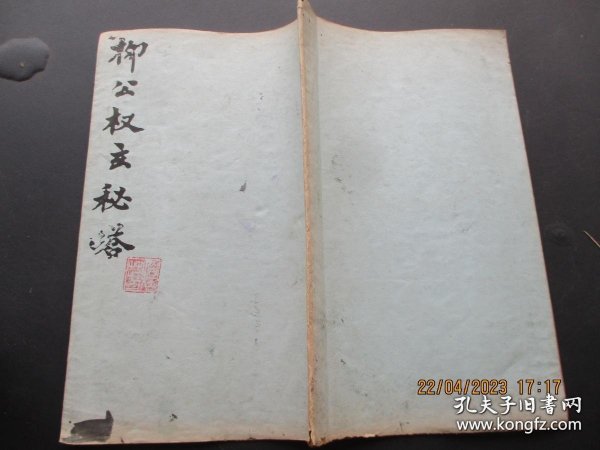 柳公权玄秘塔
22/04/2023 17:17
孔夫子旧书网
www.kongfz.com